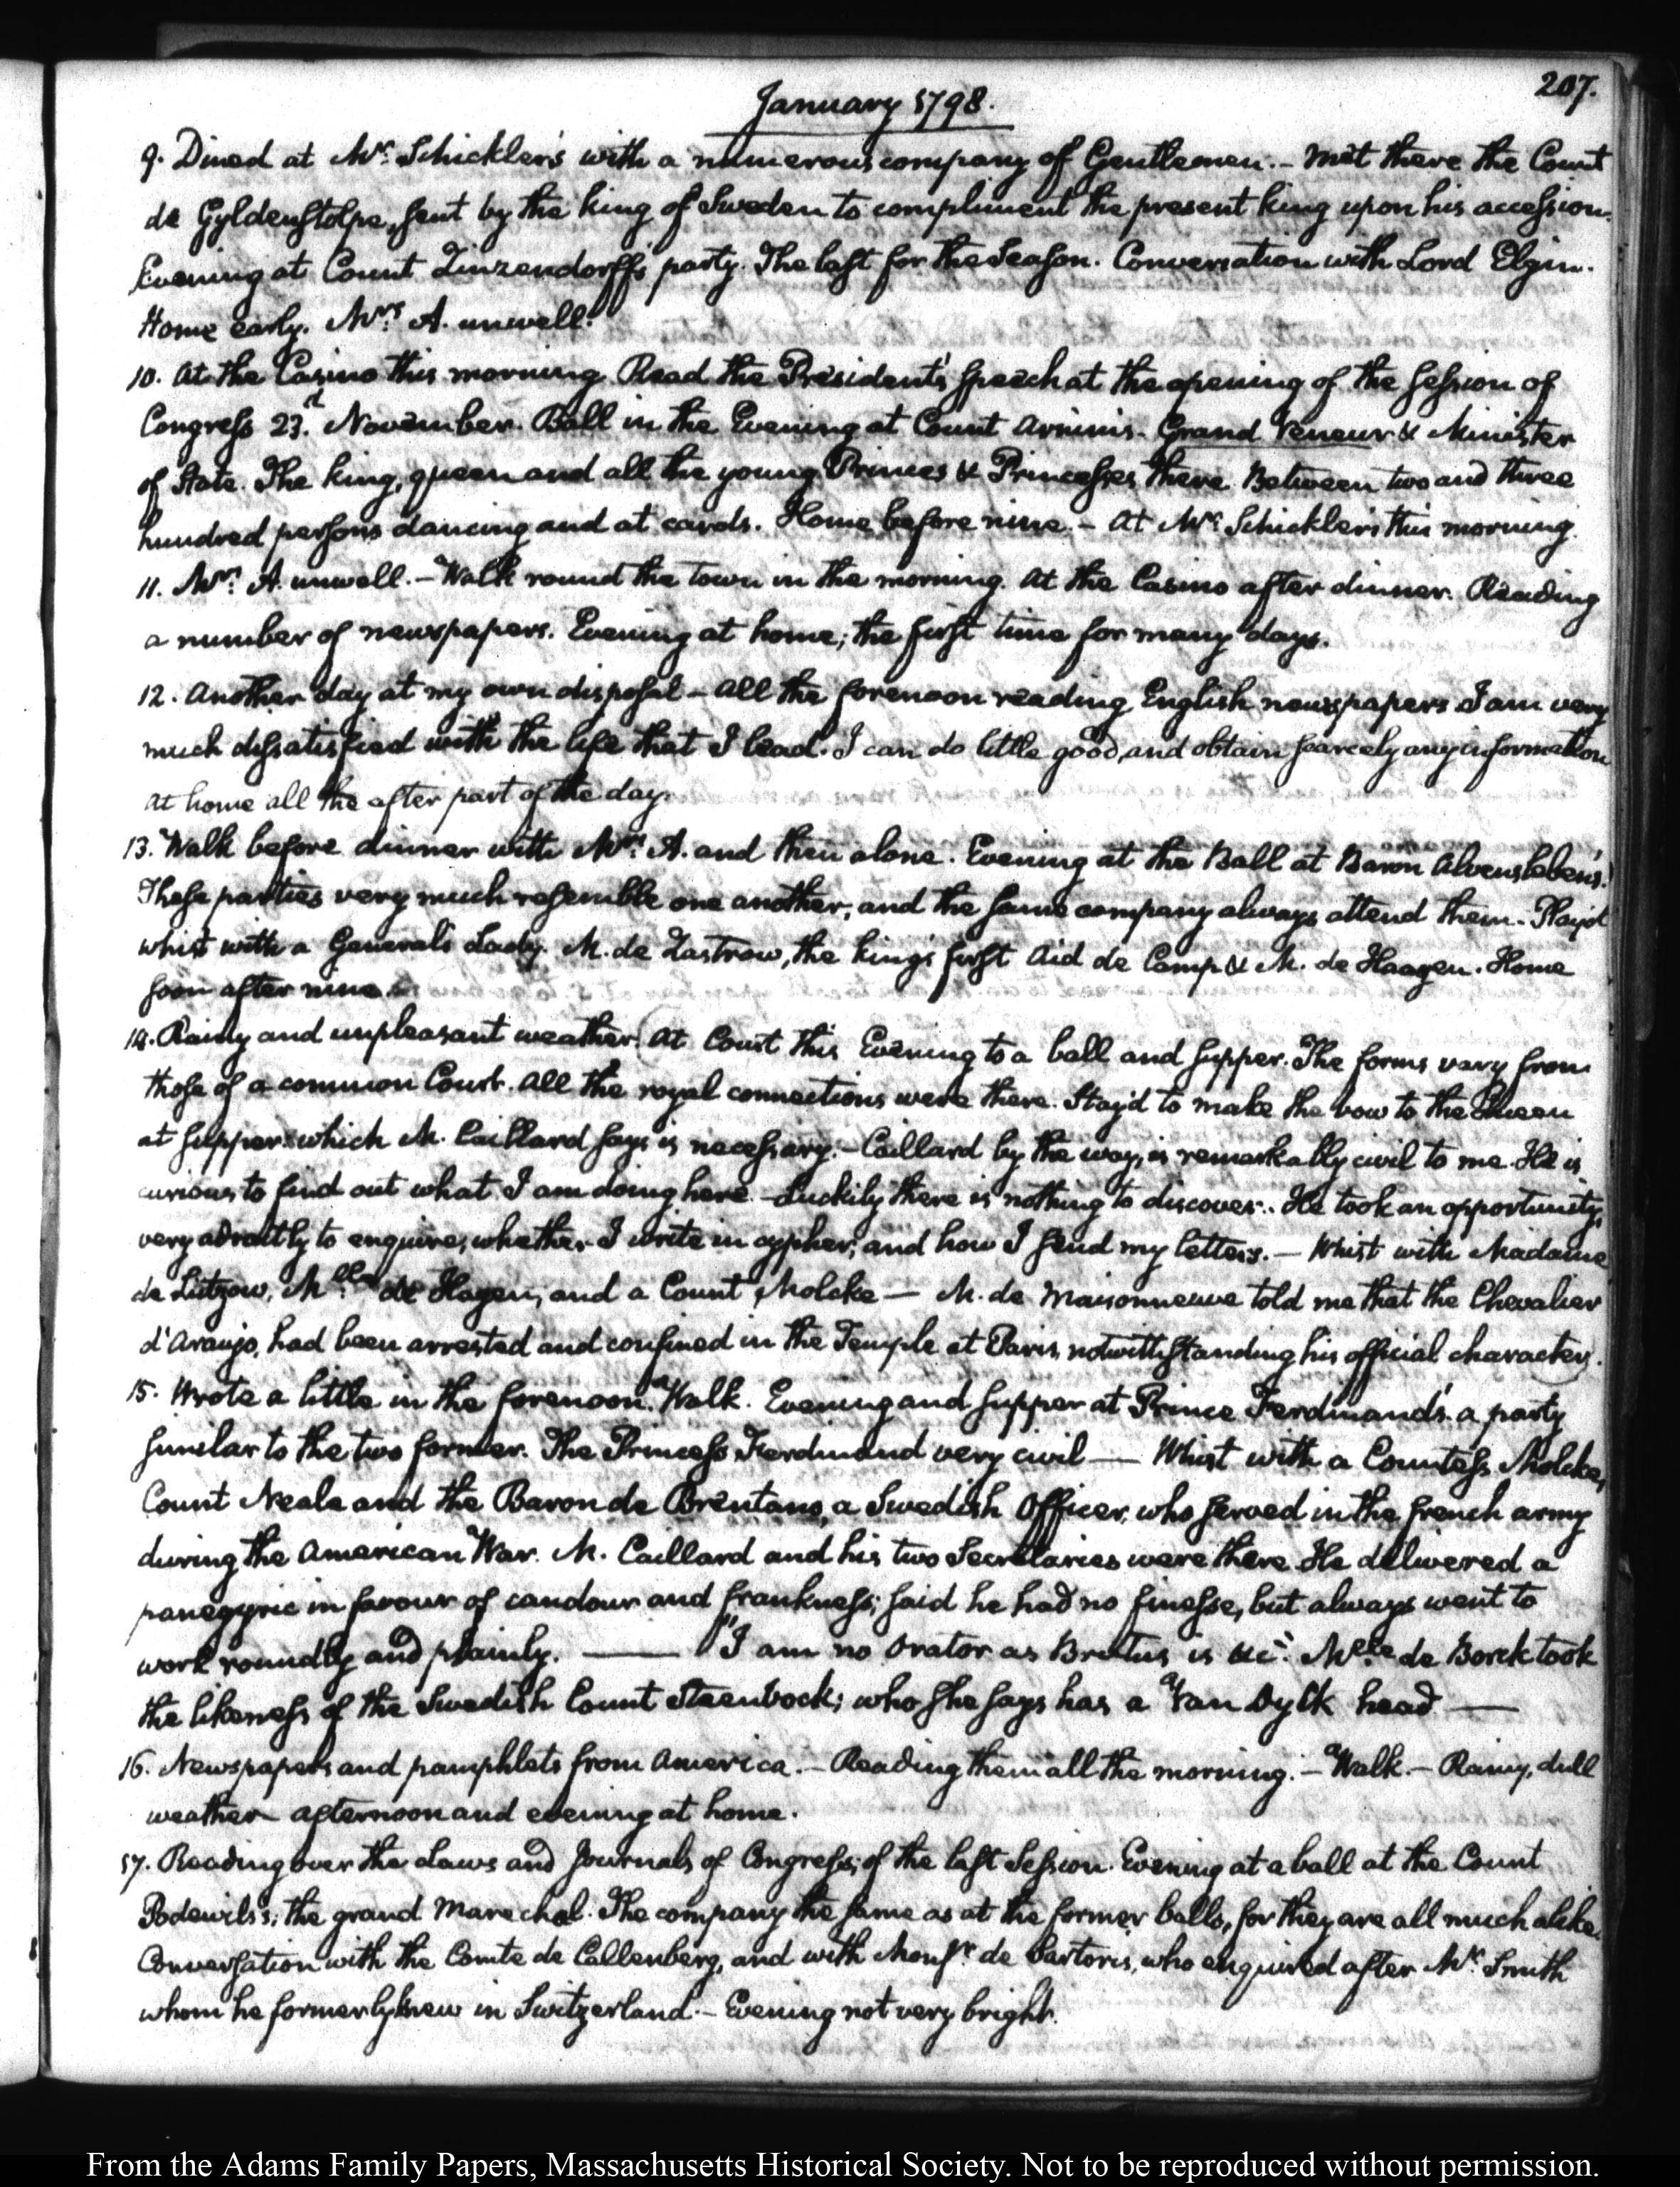 207.
January 1798.
9. Dined at Mr. Schickler's with a numerous company of Gentlemen. - Met there the Count
de Gyldenstolpe, sent by the king of Sweden to compliment the present king upon his accession.
Evening at Count Zinzendorff's party. The last for the Season. Conversation with Lord Elgin.
Home early. Mrs. A. unwell.
10. At the Casino this morning. Read the President's speech at the opening of the session of
Congress 23.d November. Ball in the Evening at Count Arnim's. Grand Veneur & Minister
of State. The king, queen and all the young Princes & Princesses there. Between two and three
hundred persons dancing and at cards. Home before nine. - At Mr. Schickler's this morning.
11. Mrs. A. unwell. - Walk round the town in the morning. At the Casino after dinner. Reading
a number of newspapers. Evening at home; the first time for many days.
12. Another day at my own disposal - All the forenoon reading English newspapers. I am very
much dissatisfied with the life that I lead. I can do little good, and obtain scarcely any information
At home all the after part of the day.
13. Walk before dinner with Mrs. A. and then alone. Evening at the Ball at Baron Alvensleben's.
These parties very much resemble one another, and the same company always attend them. Play'd
whist with a General's Lady. M. de Zastrow, the king's first Aid de Camp & M. de Haagen. Home
soon after nine.
14. Rainy and unpleasant weather. At Court this Evening to a ball and supper. The forms vary from
those of a common Court. All the royal connections were there. Stay'd to make the bow to the Queen
at supper: which M. Caillard says is necessary. - Caillard by the way, is remarkably civil to me. He is
curious to find out what I am doing here - Luckily there is nothing to discover. He took an opportunity,
very adroitly to enquire, whether I write in cypher, and how I send my letters. - Whist with Madame
de Lutzow, Mlle. de Hagen, and a Count Molcke - M. de Maisonneuve told me that the Chevalier
d'Araujo, had been arrested and confined in the Temple at Paris, notwithstanding his official character.
15. Wrote a little in the forenoon. Walk. Evening and supper at Prince Ferdinand's. a party
similar to the two former. The Princess Ferdinand very civil — Whist with a Countess Molcke,
Count Neale and the Baron de Brentano, a Swedish Officer, who served in the french army
during the American War. M. Caillard and his two Secretaries were there. He delivered a
panegyric in favour of candour and frankness; said he had no finesse, but always went to
work roundly and plainly. — "I am no Orator as Brutus is &c." Mlle. de Borck took
the likeness of the Swedish Count Steenbock; who she says has a Van Dyck head —
16. Newspapers and pamphlets from America. - Reading them all the morning. - Walk. - Rainy, dull
weather afternoon and evening at home.
17. Reading over the Laws and Journals of Congress, of the last Session. Evening at a ball at the Count
Podewils's; the grand Marechal. The company the same as at the former balls, for they are all much alike.
Conversation with the Comte de Callenberg, and with Monsr. de Sartoris, who enquired after Mr. Smith
whom he formerly knew in Switzerland. - Evening not very bright.
From the Adams Family Papers, Massachusetts Historical Society. Not to be reproduced without permission.